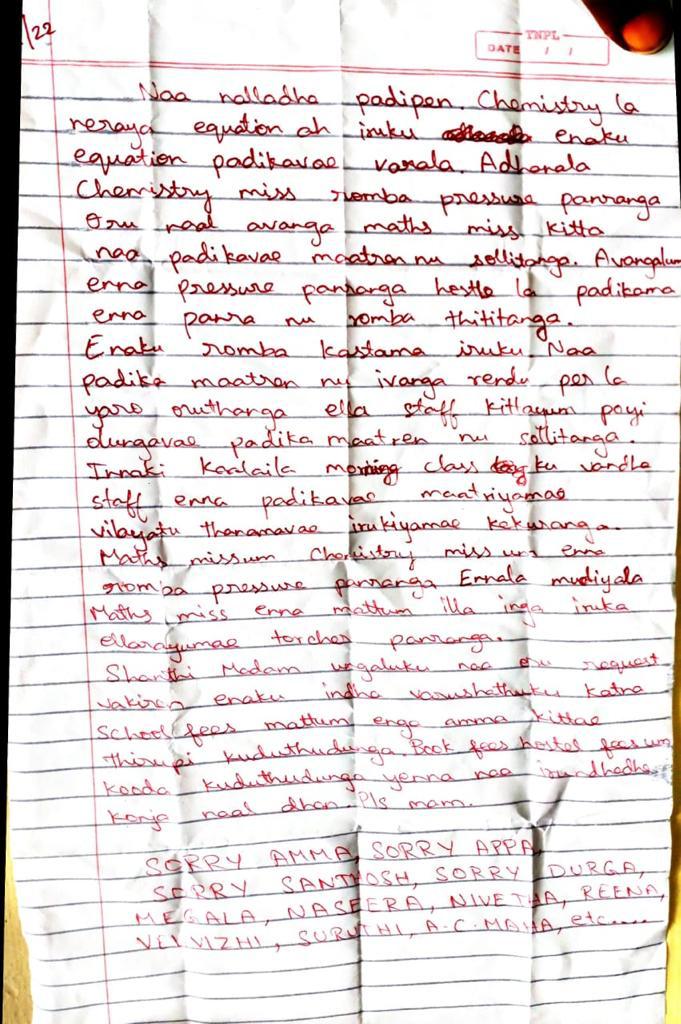 /22
TNPL
DATE / /
Naa nalladha padipen. Chemistry la
neraya equation ah iruku enaku
equation padikavae varala. Adhanala
Chemistry miss romba pressure panranga
Oru naal avanga maths miss kitta
naa padikavae maatren nu sollitanga. Avangalum
enna pressure panranga hestle la padikama
enna panra nu romba thititanga.
Enaku romba kastama iruku. Naa
padika maatren nu ivanga rendu per la
yaro oruthanga ella staff kitlayum poyi
dungavae padika maatren nu sollitanga.
Innaki Kaalaila morning class ku vandha
staff enna padikavae maatriyamae
vilayatu thanamavae irukiyamae kekuranga.
Maths missum Chemistry miss um enna
romba pressure panranga Ennala mudiyala
Maths miss enna mattum illa inga iruka
ellarayumae torcher panranga.
Shanthi Madam ungaluku naa oru request
vakiren enaku indha varushathuku katna
School fees mattum enga amma kittae
thirupi kuduthudunga. Book fees hostel fees um
kooda kuduthudunga yenna naa irundhadhe
konja naal dhan. Pls mam.
SORRY AMMA, SORRY APPA,
SORRY SANTHOSH, SORRY DURGA,
MEGALA, NASEERA, NIVETHA, REENA,
VELVIZHI, SURUTHI, A.C.MAHA, etc.....